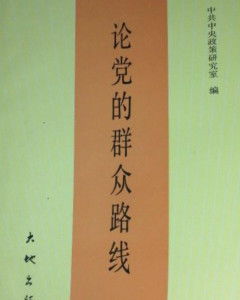 中共中央政策研究室 编
论党的群众路线
大地出